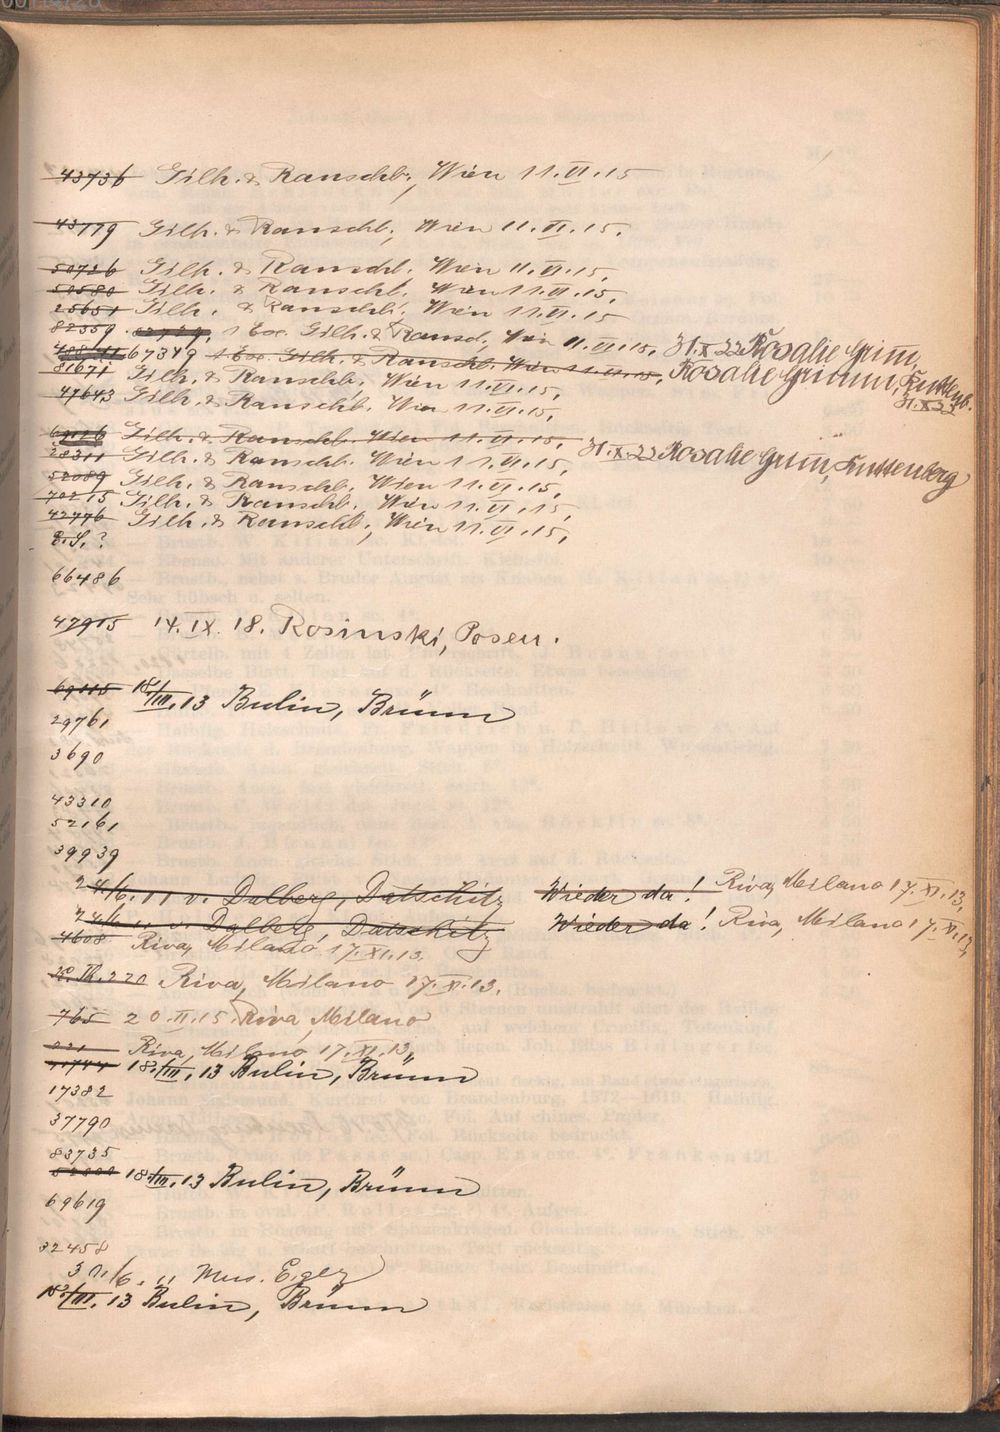 43736 Gilh. & Ranschb., Wien 11. VI. 15
43779 Gilh. & Ranschb., Wien 11. VI. 15.
50726 Gilh. & Ranschb., Wien 11. VI. 15.
50580 Gilh. & Ranschb., Wien 11. VI. 15.
25651 Gilh. & Ranschb., Wien 11. VI. 15
82359 1 Ex. Gilh. & Ransch., Wien 11. VI. 15. 31. X 22 Rosalie Grimm,
67349 1 Ex. Gilh. & Ranschb. Wien 11. VI. 15. Rosalie Grimm, Kuttenb.
81671 Gilh. & Ranschb., Wien 11. VI. 15. 31. X 22
47643 Gilh. & Ranschb., Wien 11. VI. 15.
Gilh. & Ranschb. Wien 11. VI. 15. 31. X. 22 Rosalie Grimm, Kuttenberg
28311 Gilh. & Ranschb. Wien 11. VI. 15.
52089 Gilh. & Ranschb., Wien 11. VI. 15.
70215 Gilh. & Ranschb., Wien 11. VI. 15
42776 Gilh. & Ranschb., Wien 11. VI. 15.
66486
47915 14. IX. 18. Rosinski, Posen.
69115 18./III. 13 Bulin, Brünn
29761
3690
43310
52161
39939
24./6. 11 v. Dalberg, Datschitz Wieder da! Riva, Milano 17. XI. 13.
24./6. 11 v. Dalberg, Datschitz Wieder da! Riva, Milano 17. XI. 13.
4608 Riva, Milano 17. XI. 13.
Riva, Milano 17. XI. 13.
765 20. II. 15. Riva, Milano
Riva, Milano 17. XI. 13.
18./III. 13 Bulin, Brünn
17382
37790
83735
18./III. 13 Bulin, Brünn
69619
32458
30./6. 11 Mus. Eger
18./III. 13 Bulin, Brünn